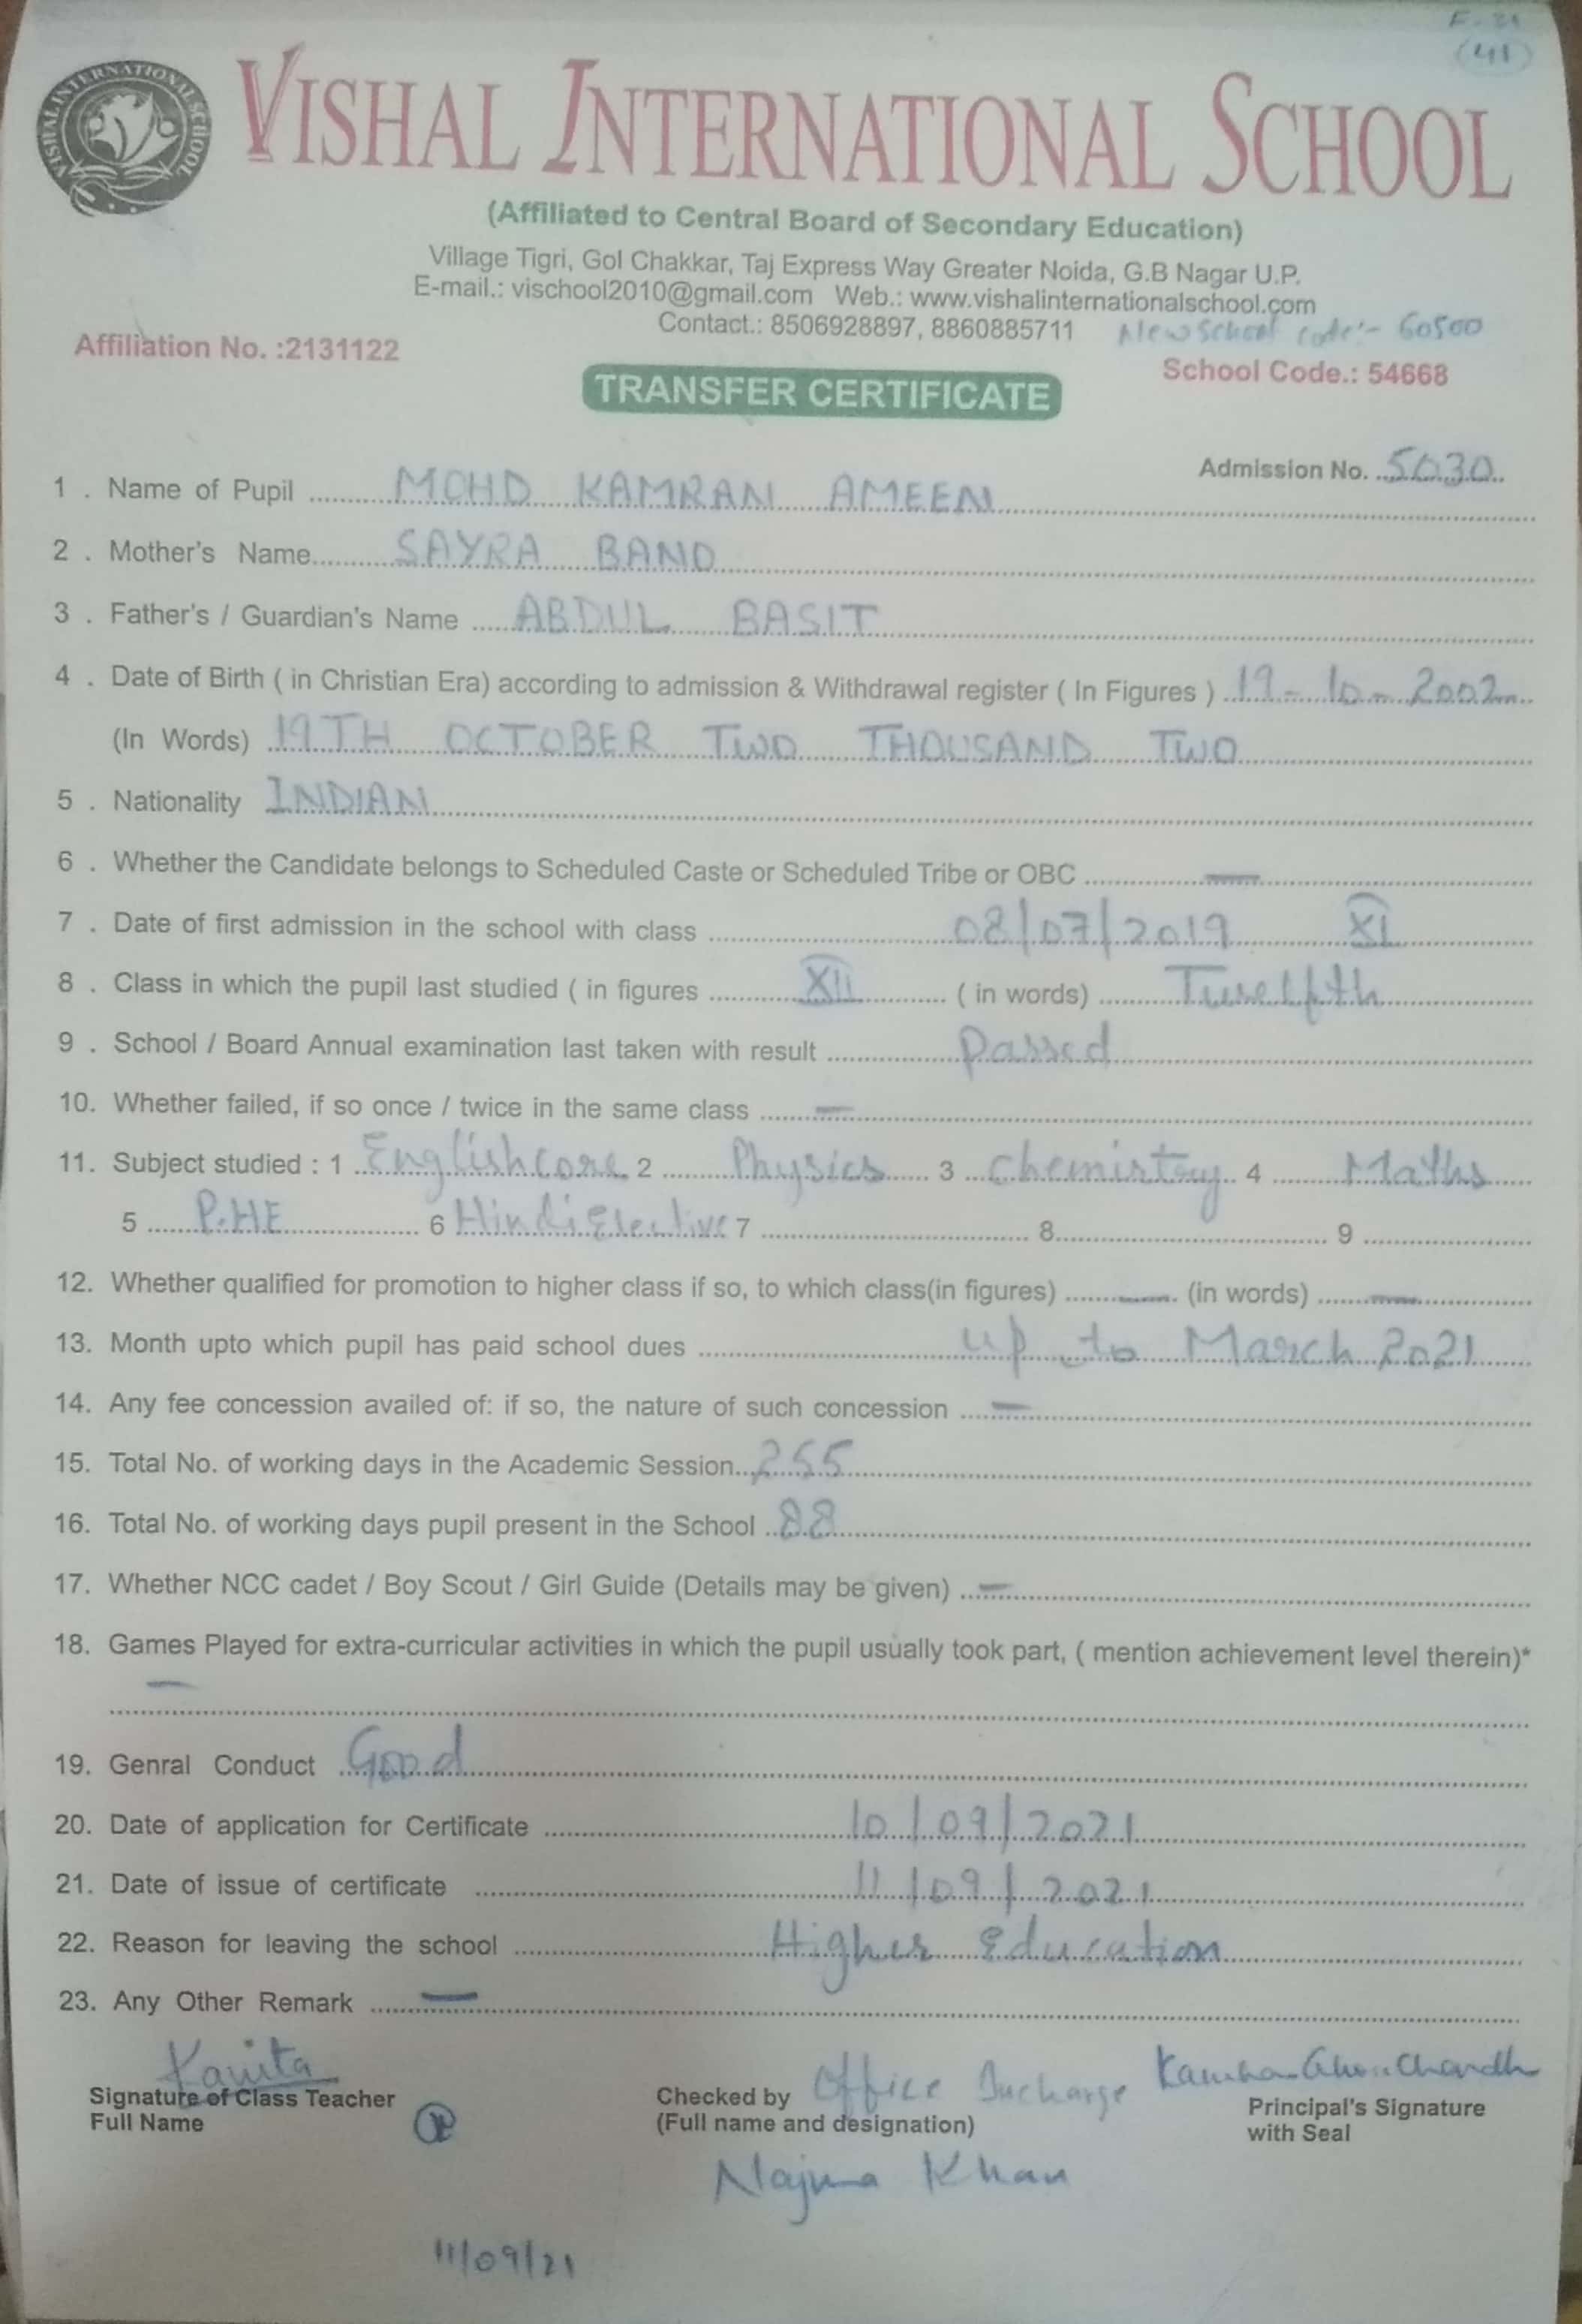 F-21
(41)
VISHAL INTERNATIONAL SCHOOL
VISHAL INTERNATIONAL SCHOOL
(Affiliated to Central Board of Secondary Education)
Village Tigri, Gol Chakkar, Taj Express Way Greater Noida, G.B Nagar U.P.
E-mail.: vischool2010@gmail.com Web.: www.vishalinternationalschool.com
Contact.: 8506928897, 8860885711 New School code:- 60500
Affiliation No. :2131122 School Code.: 54668
TRANSFER CERTIFICATE
Admission No. 5030
1 . Name of Pupil MOHD KAMRAN AMEEN
2 . Mother's Name SAYRA BANO
3 . Father's / Guardian's Name ABDUL BASIT
4 . Date of Birth ( in Christian Era) according to admission & Withdrawal register ( In Figures ) 19-10-2002
(In Words) 19TH OCTOBER TWO THOUSAND TWO
5 . Nationality INDIAN
6 . Whether the Candidate belongs to Scheduled Caste or Scheduled Tribe or OBC —
7 . Date of first admission in the school with class 08/07/2019 XI
8 . Class in which the pupil last studied ( in figures XII ( in words) Twelfth
9 . School / Board Annual examination last taken with result Passed
10. Whether failed, if so once / twice in the same class —
11. Subject studied : 1 English core 2 Physics 3 Chemistry 4 Maths
5 P.HE 6 Hindi Elective 7 8 9
12. Whether qualified for promotion to higher class if so, to which class(in figures) — (in words) —
13. Month upto which pupil has paid school dues up to March 2021
14. Any fee concession availed of: if so, the nature of such concession —
15. Total No. of working days in the Academic Session 255
16. Total No. of working days pupil present in the School 88
17. Whether NCC cadet / Boy Scout / Girl Guide (Details may be given) —
18. Games Played for extra-curricular activities in which the pupil usually took part, ( mention achievement level therein)*
—
19. Genral Conduct Good
20. Date of application for Certificate 10/09/2021
21. Date of issue of certificate 11/09/2021
22. Reason for leaving the school Higher Education
23. Any Other Remark —
Kavita
Signature of Class Teacher Checked by Office Incharge
Full Name (Full name and designation) Principal's Signature
with Seal
Najma Khan
11/09/21